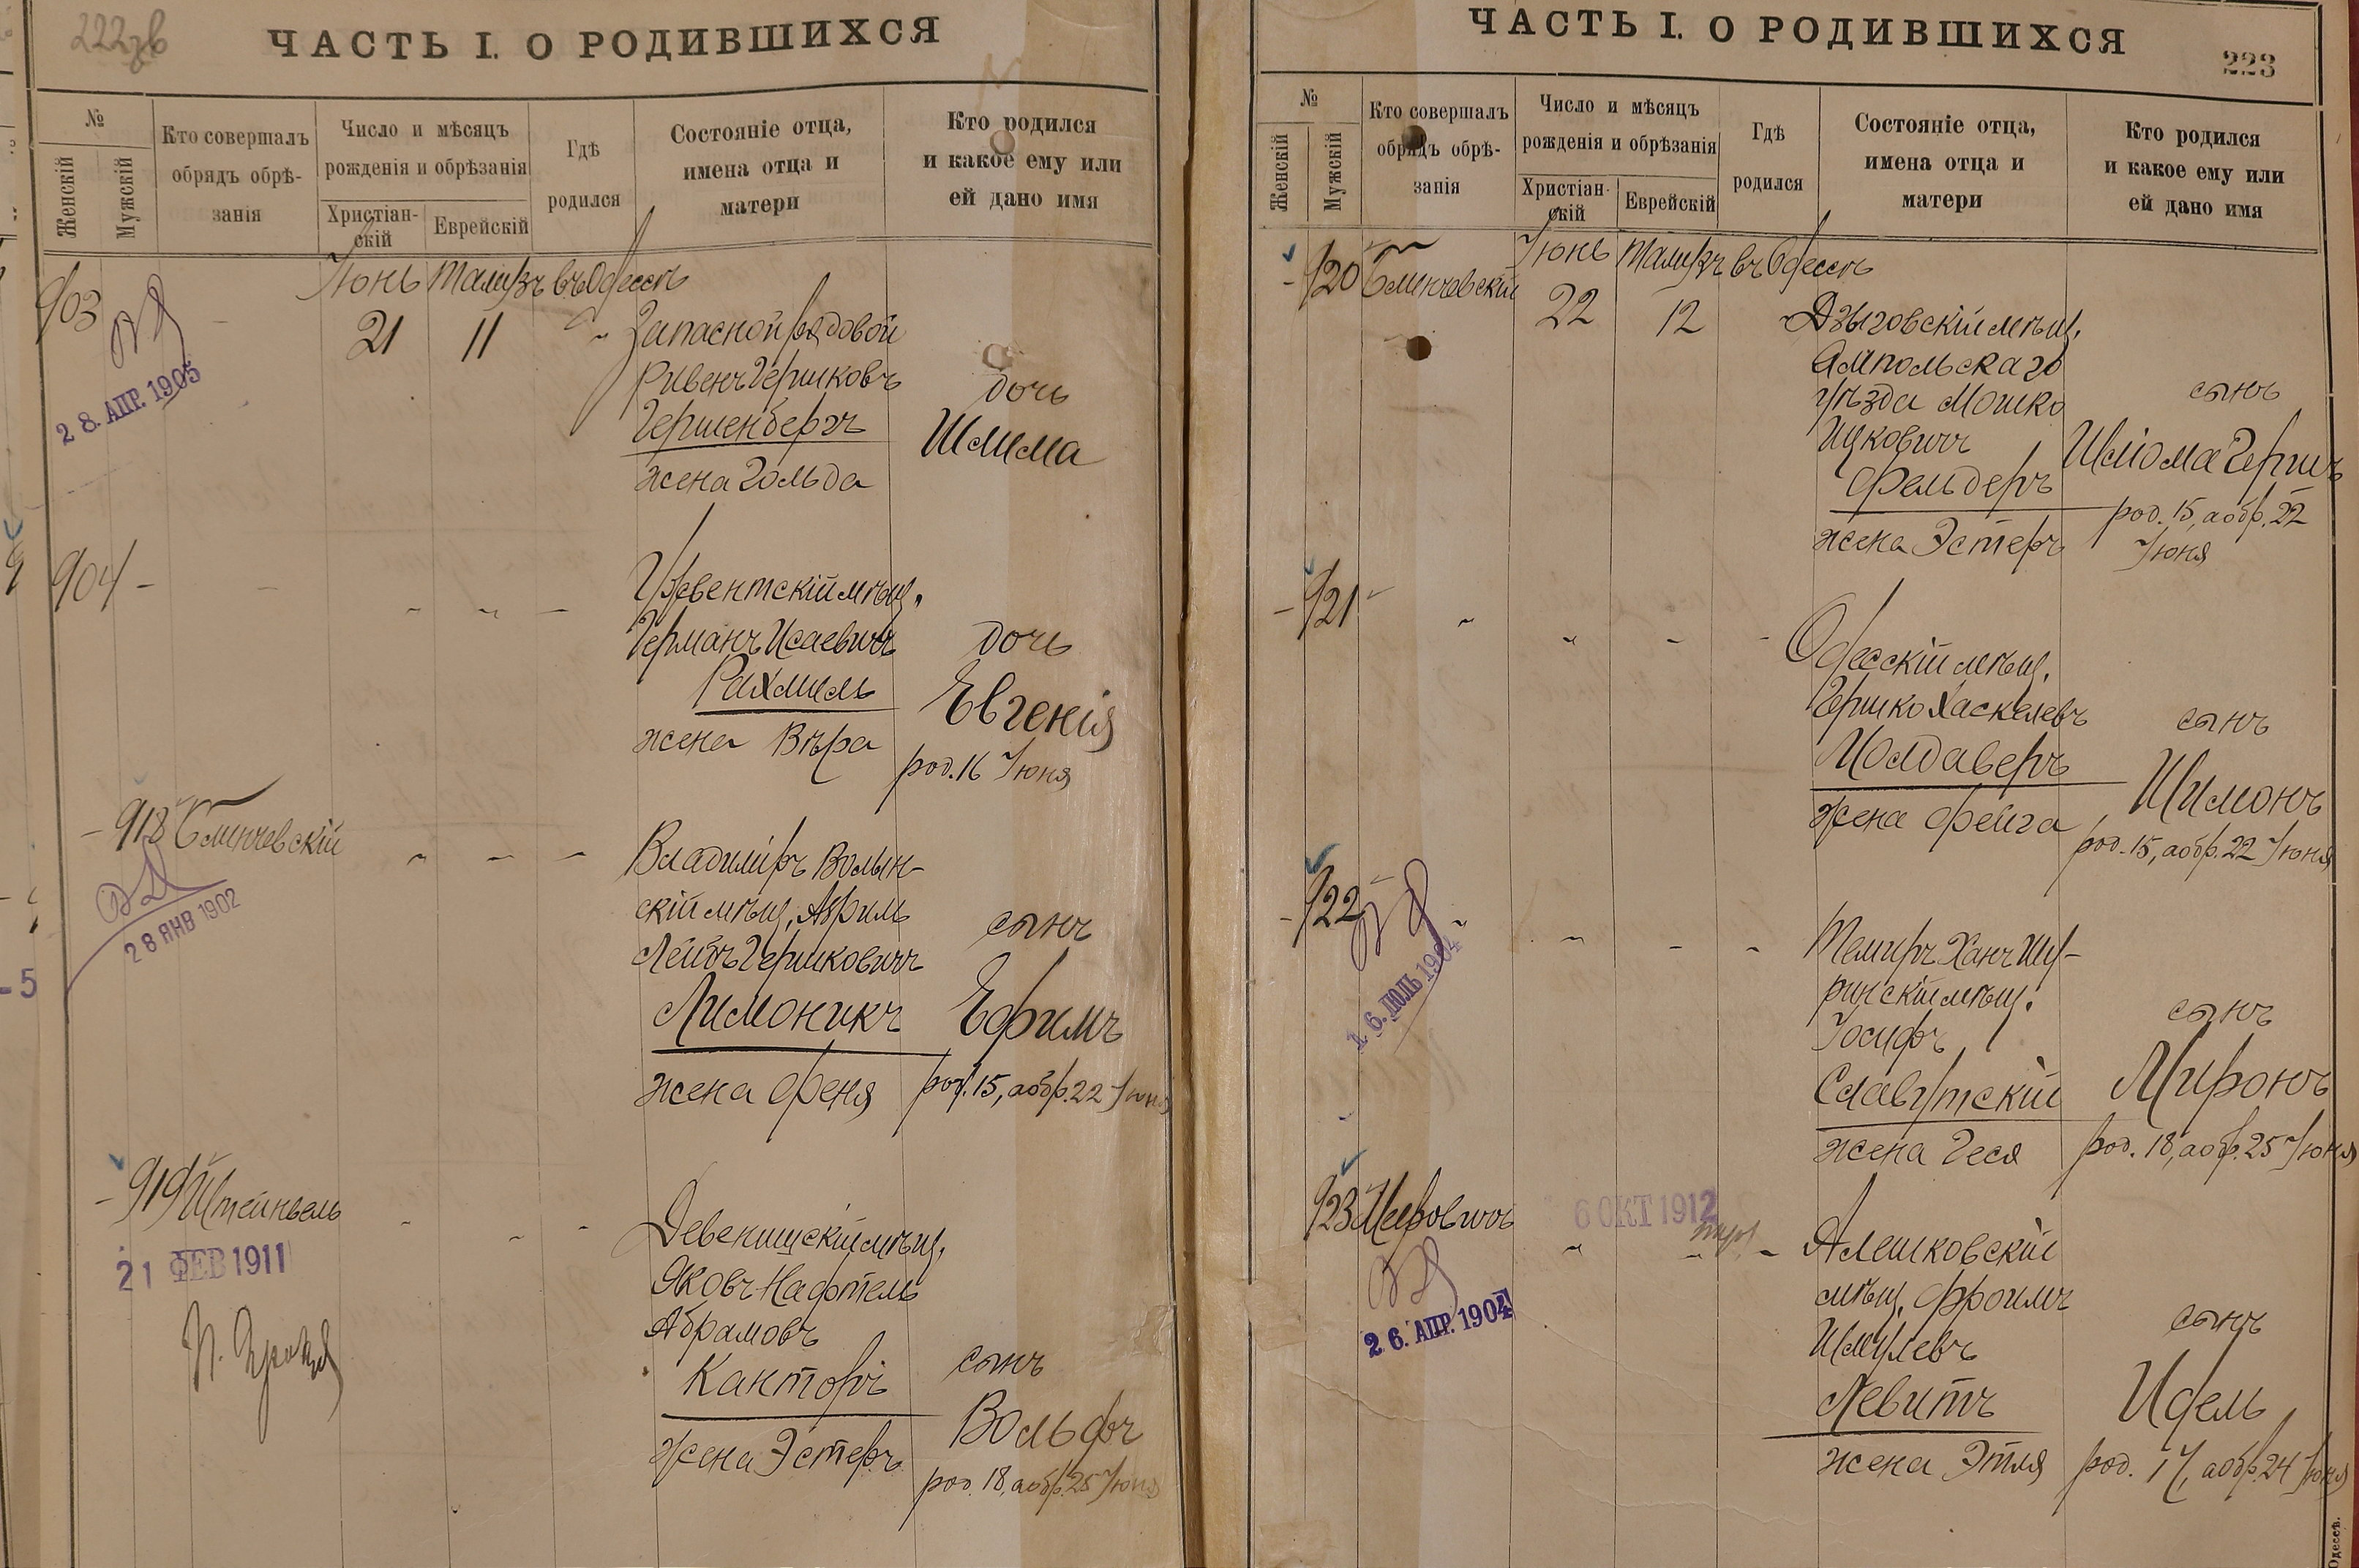 222 зв
ЧАСТЬ I. О РОДИВШИХСЯ
№
Женскій
Мужскій
Кто совершалъ
обрядъ обрѣ-
занія
Число и мѣсяцъ
рожденія и обрѣзанія
Христіан-
скій
Еврейскій
Гдѣ
родился
Состояніе отца,
имена отца и
матери
Кто родился
и какое ему или
ей дано имя
Іюнь Тамузъ въ Одессѣ
903
21 11
28. АПР. 1905
Запасной рядовой
Ривенъ Гершковъ
Гершенбергъ
жена Гольда
дочь
Шлима
904 -
мѣщ.
Германъ Исаевичъ
Рахмиль
жена Вѣра
дочь
Евгенія
род. 16 Іюня
- 918
28 ЯНВ 1902
Владимiръ Волын-
скій мѣщ. Аврумъ
Лейбъ Гершковичъ
Лимоникъ
жена Феня
сынъ
Ефимъ
род. 15, а обр. 22 Іюня
- 919 Штейнвель
21 ФЕВ 1911
Девенишскій мѣщ.
Яковъ Нафтель
Абрамовъ
Канторъ
жена Эстеръ
сынъ
Вольфъ
род. 18, а обр. 25 Іюня
- 5
ЧАСТЬ I. О РОДИВШИХСЯ
223
№
Женскій
Мужскій
Кто совершалъ
обрядъ обрѣ-
занія
Число и мѣсяцъ
рожденія и обрѣзанія
Христіан-
скій
Еврейскій
Гдѣ
родился
Состояніе отца,
имена отца и
матери
Кто родился
и какое ему или
ей дано имя
Іюнь Тамузъ въ Одессѣ
- 920
22 12
Дзыговскій мѣщ.
Ямпольскаго
уѣзда Мошко
Ицковичъ
Фельдеръ
жена Эстеръ
сынъ
Шліома Гершъ
род. 15, а обр. 22
Іюня
- 921
Одесскій мѣщ.
Гершко Хаскелевъ
Молдаверъ
жена Фейга
сынъ
Шимонъ
род. 15, а обр. 22 Іюня
- 922
16. ІЮЛЬ 1904
Темиръ Ханъ Шу-
ринскій мѣщ.
Іосифъ
Славутскій
жена Геся
сынъ
Миронъ
род. 18, а обр. 25 Іюня
923
6 ОКТ 1912
26. АПР. 1904
Алешковскій
мѣщ. Фроимъ
Шмулевъ
Левитъ
жена Этля
сынъ
Идель
род. 17, а обр. 24 Іюня
Одессѣ.